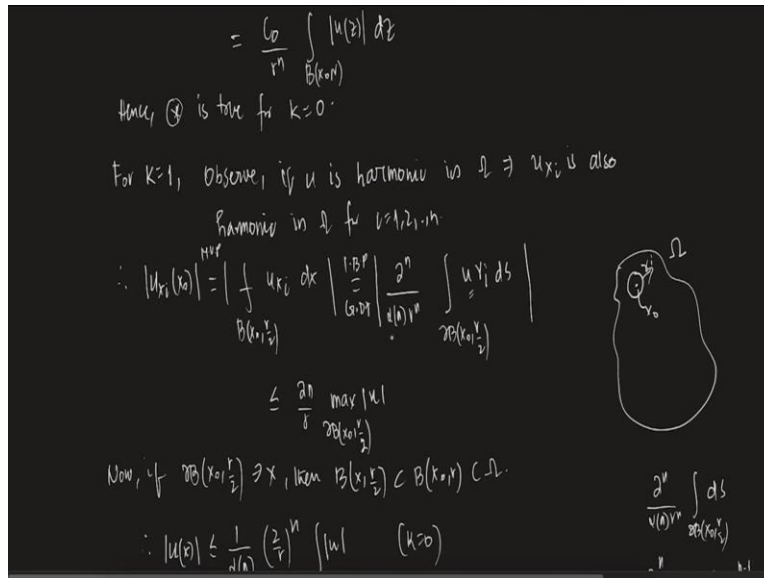 = C₀/rⁿ ∫_{B(x₀,r)} |u(z)| dz
Hence, ⊛ is true for k=0.
For k=1, observe, if u is harmonic in Ω ⇒ u_{xᵢ} is also
harmonic in Ω for i=1,2,..,n.
∴ |u_{xᵢ}(x₀)| =^{MVP} | ⨍_{B(x₀,r/2)} u_{xᵢ} dx | =^{I.BP}_{G.DT} | 2ⁿ/(α(n)rⁿ) ∫_{∂B(x₀,r/2)} u νᵢ ds |
Ω
x₀
≤ 2n/r max_{∂B(x₀,r/2)} |u|
Now, if ∂B(x₀,r/2) ∋ x, then B(x,r/2) ⊂ B(x₀,r) ⊂ Ω.
2ⁿ/(α(n)rⁿ) ∫_{∂B(x₀,r/2)} ds
∴ |u(x)| ≤ 1/α(n) (2/r)ⁿ ∫|u| (k=0)